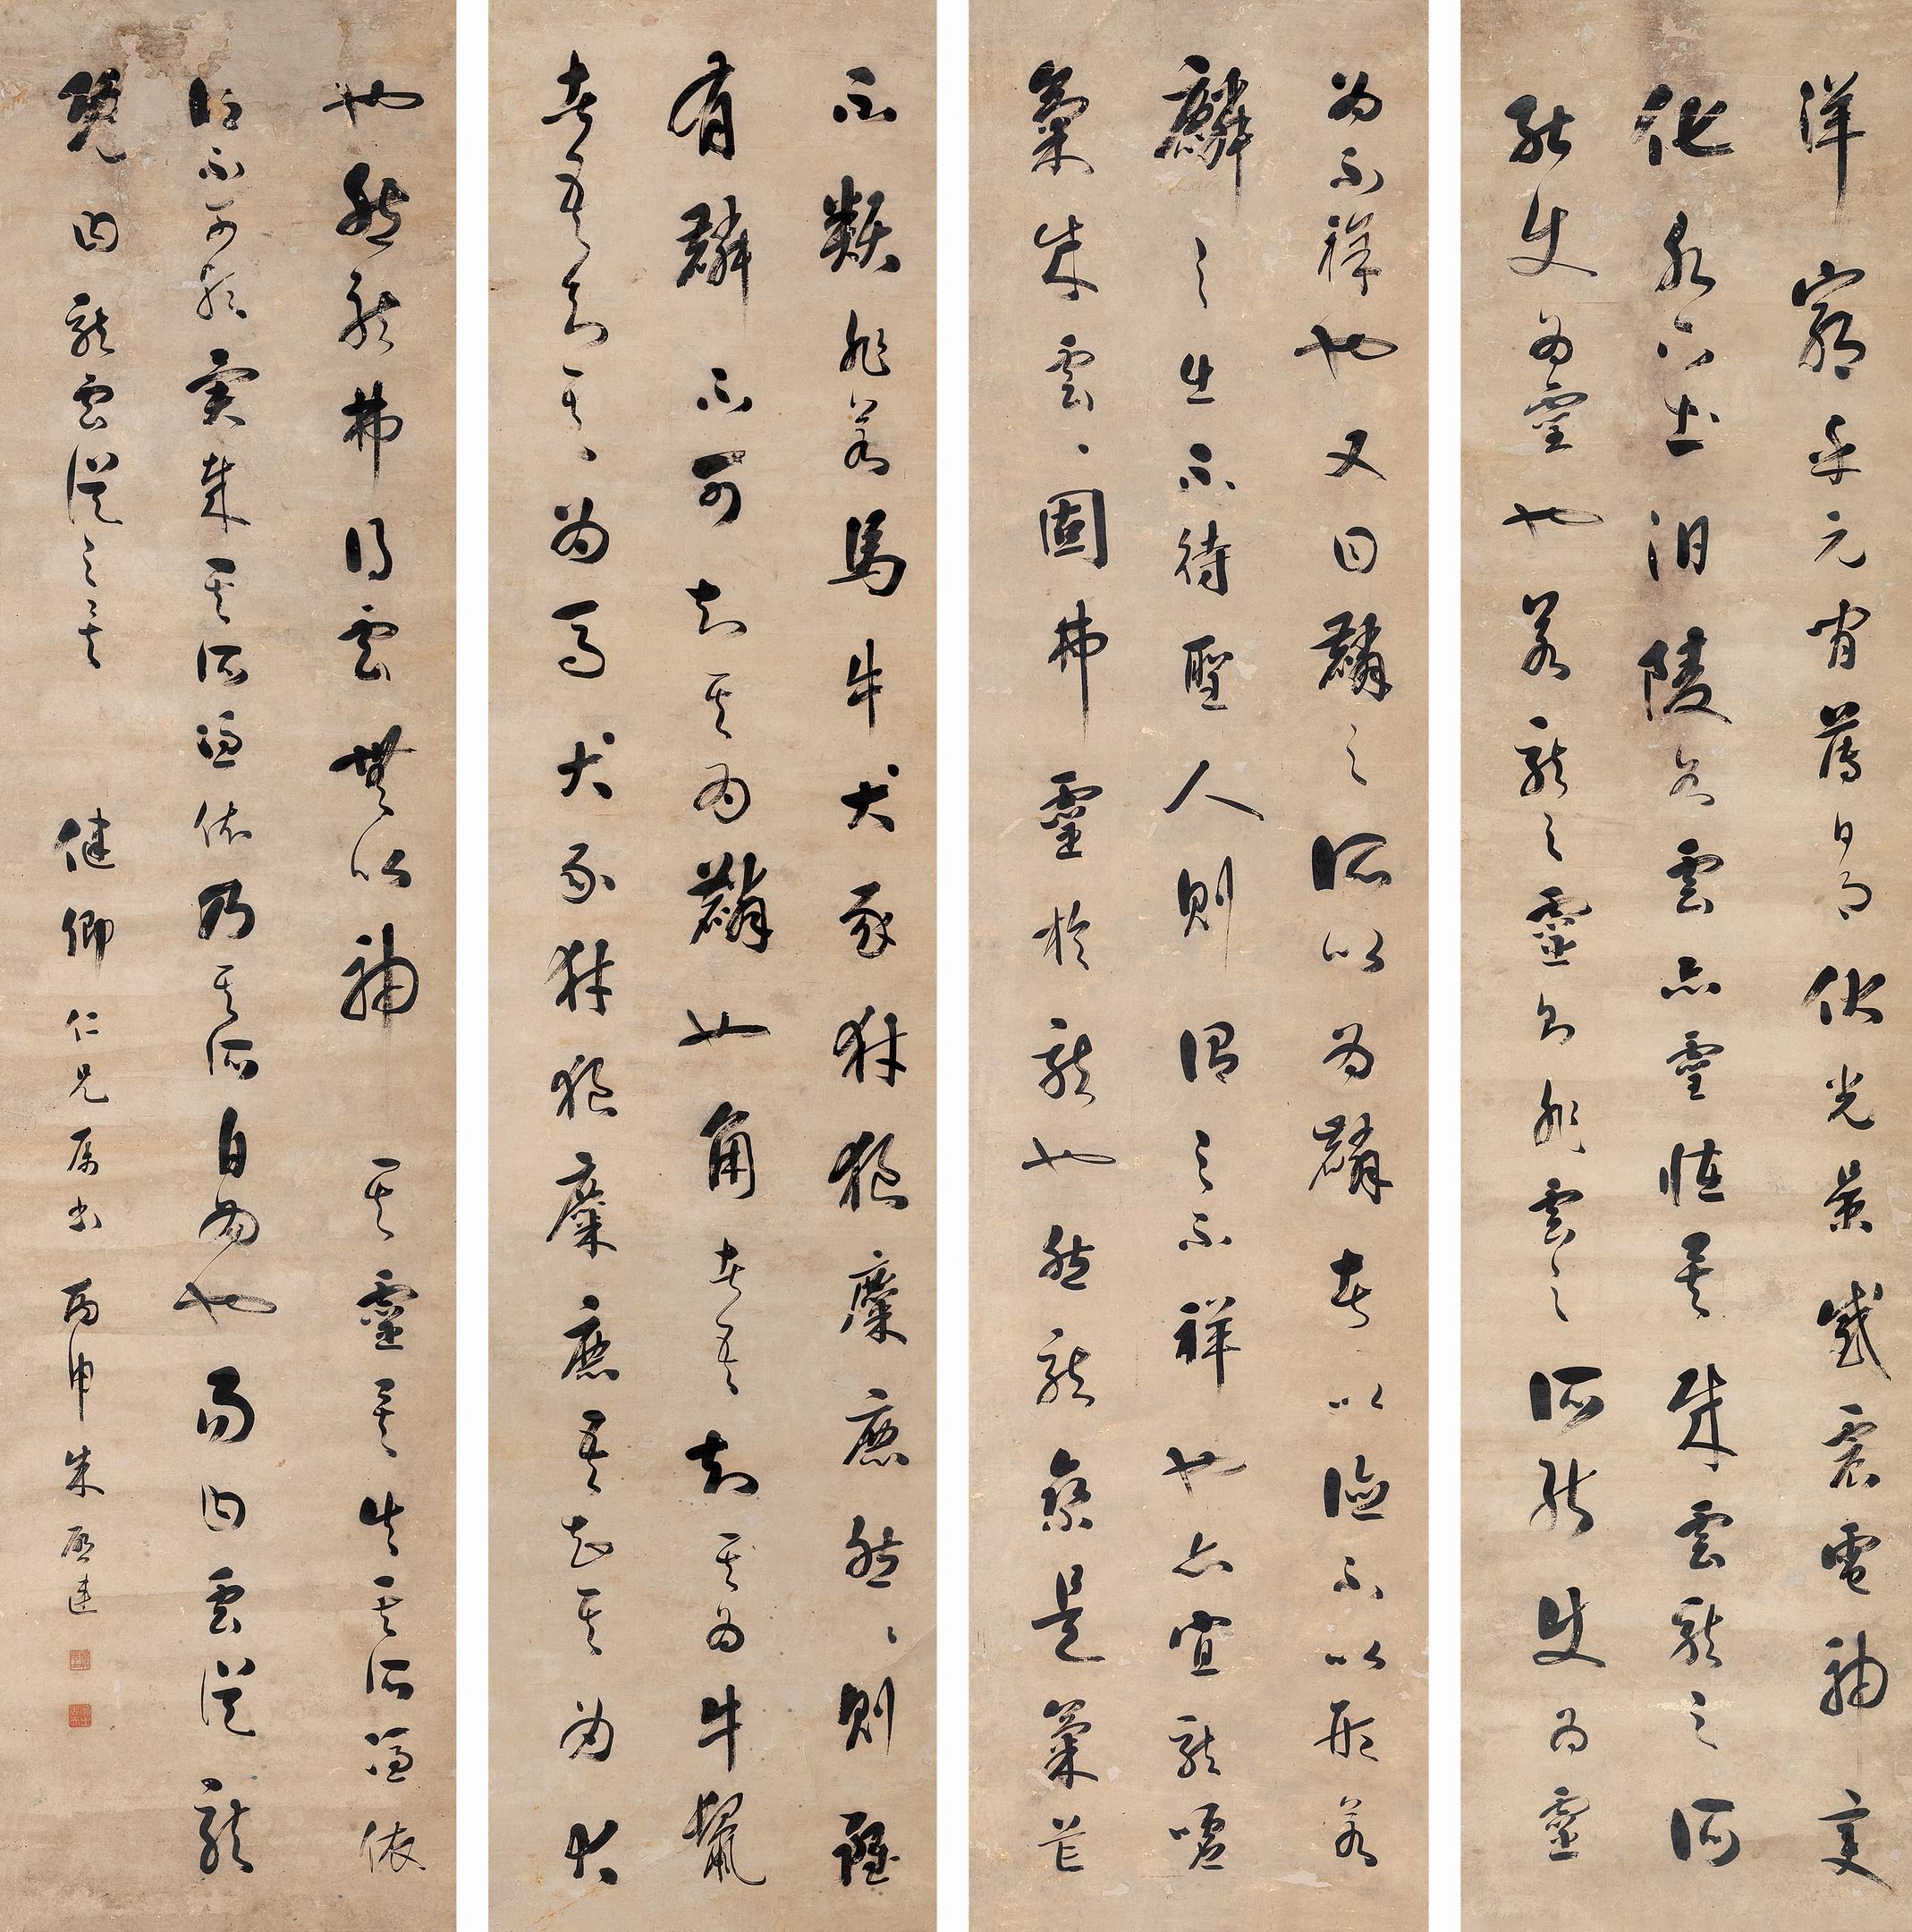 洋窮乎元間薄日月伏光景感震電神變
化水下土汩陵谷雲亦靈怪矣哉雲龍之所
能使為靈也若龍之靈則非雲之所能使為靈
為不祥也又曰麟之所以為麟者以德不以形若
麟之出不待聖人則謂之不祥也亦宜龍噓
氣成雲雲固弗靈於龍也然龍乘是氣茫
不類非若馬牛犬豕豺狼麋鹿然然則雖
有麟不可知其為麟也角者吾知其為牛鬣
者吾知其為馬犬豕豺狼麋鹿吾知其為犬
也然龍弗得雲無以神其靈矣失其所憑依
信不可歟異哉其所憑依乃其所自為也易曰雲從龍
既曰龍雲從之矣
健卿仁兄屬書丙申朱啟連